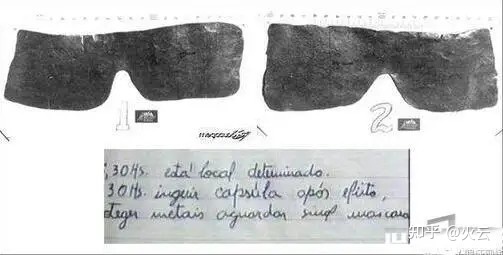 1
2
30Hs. está local determinado.
30Hs. inguir capsúla após efeito,
teger metais aguardar sinal mascara
知乎 @火云